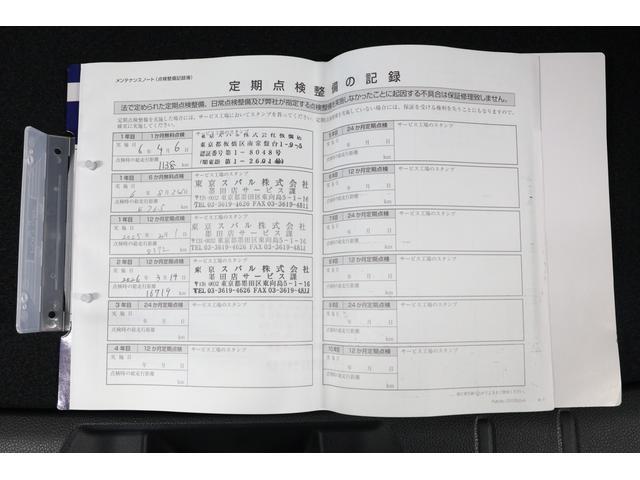 メンテナンスノート(点検整備記録簿)
定期点検整備の記録
法で定められた定期点検整備、日常点検整備及び弊社が指定する点検整備を実施しなかったことに起因する不具合は保証修理致しません。
1年目 1か月無料点検 サービス工場のスタンプ
実施日 6年4月6日
点検時の総走行距離
1138 km
東京スバル株式会社板橋店
東京都板橋区南常盤台1-9-5
認証番号第1-8048号
1年目 6か月定期点検 サービス工場のスタンプ
実施日
点検時の総走行距離
km
東京スバル株式会社
墨田店サービス課
〒131-0032 東京都墨田区東向島5-1-16
TEL 03-3619-4626 FAX 03-3619-4811
1年目 12か月定期点検 サービス工場のスタンプ
実施日 2025年2月1日
点検時の総走行距離
km
東京スバル株式会社
墨田店サービス課
〒131-0032 東京都墨田区東向島5-1-16
TEL 03-3619-4626 FAX 03-3619-4811
2年目 12か月定期点検 サービス工場のスタンプ
実施日 2026年3月14日
点検時の総走行距離
16719 km
東京スバル株式会社
墨田店サービス課
〒131-0032 東京都墨田区東向島5-1-16
TEL 03-3619-4626 FAX 03-3619-4811
3年目 24か月定期点検 サービス工場のスタンプ
実施日 年 月 日
点検時の総走行距離
km
4年目 12か月定期点検 サービス工場のスタンプ
実施日 年 月 日
点検時の総走行距離
km
5年目 24か月定期点検 サービス工場のスタンプ
実施日 年 月 日
点検時の総走行距離
km
6年目 12か月定期点検 サービス工場のスタンプ
実施日 年 月 日
点検時の総走行距離
km
7年目 24か月定期点検 サービス工場のスタンプ
実施日 年 月 日
点検時の総走行距離
km
8年目 12か月定期点検 サービス工場のスタンプ
実施日 年 月 日
点検時の総走行距離
km
9年目 24か月定期点検 サービス工場のスタンプ
実施日 年 月 日
点検時の総走行距離
km
10年目 12か月定期点検 サービス工場のスタンプ
実施日 年 月 日
点検時の総走行距離
km